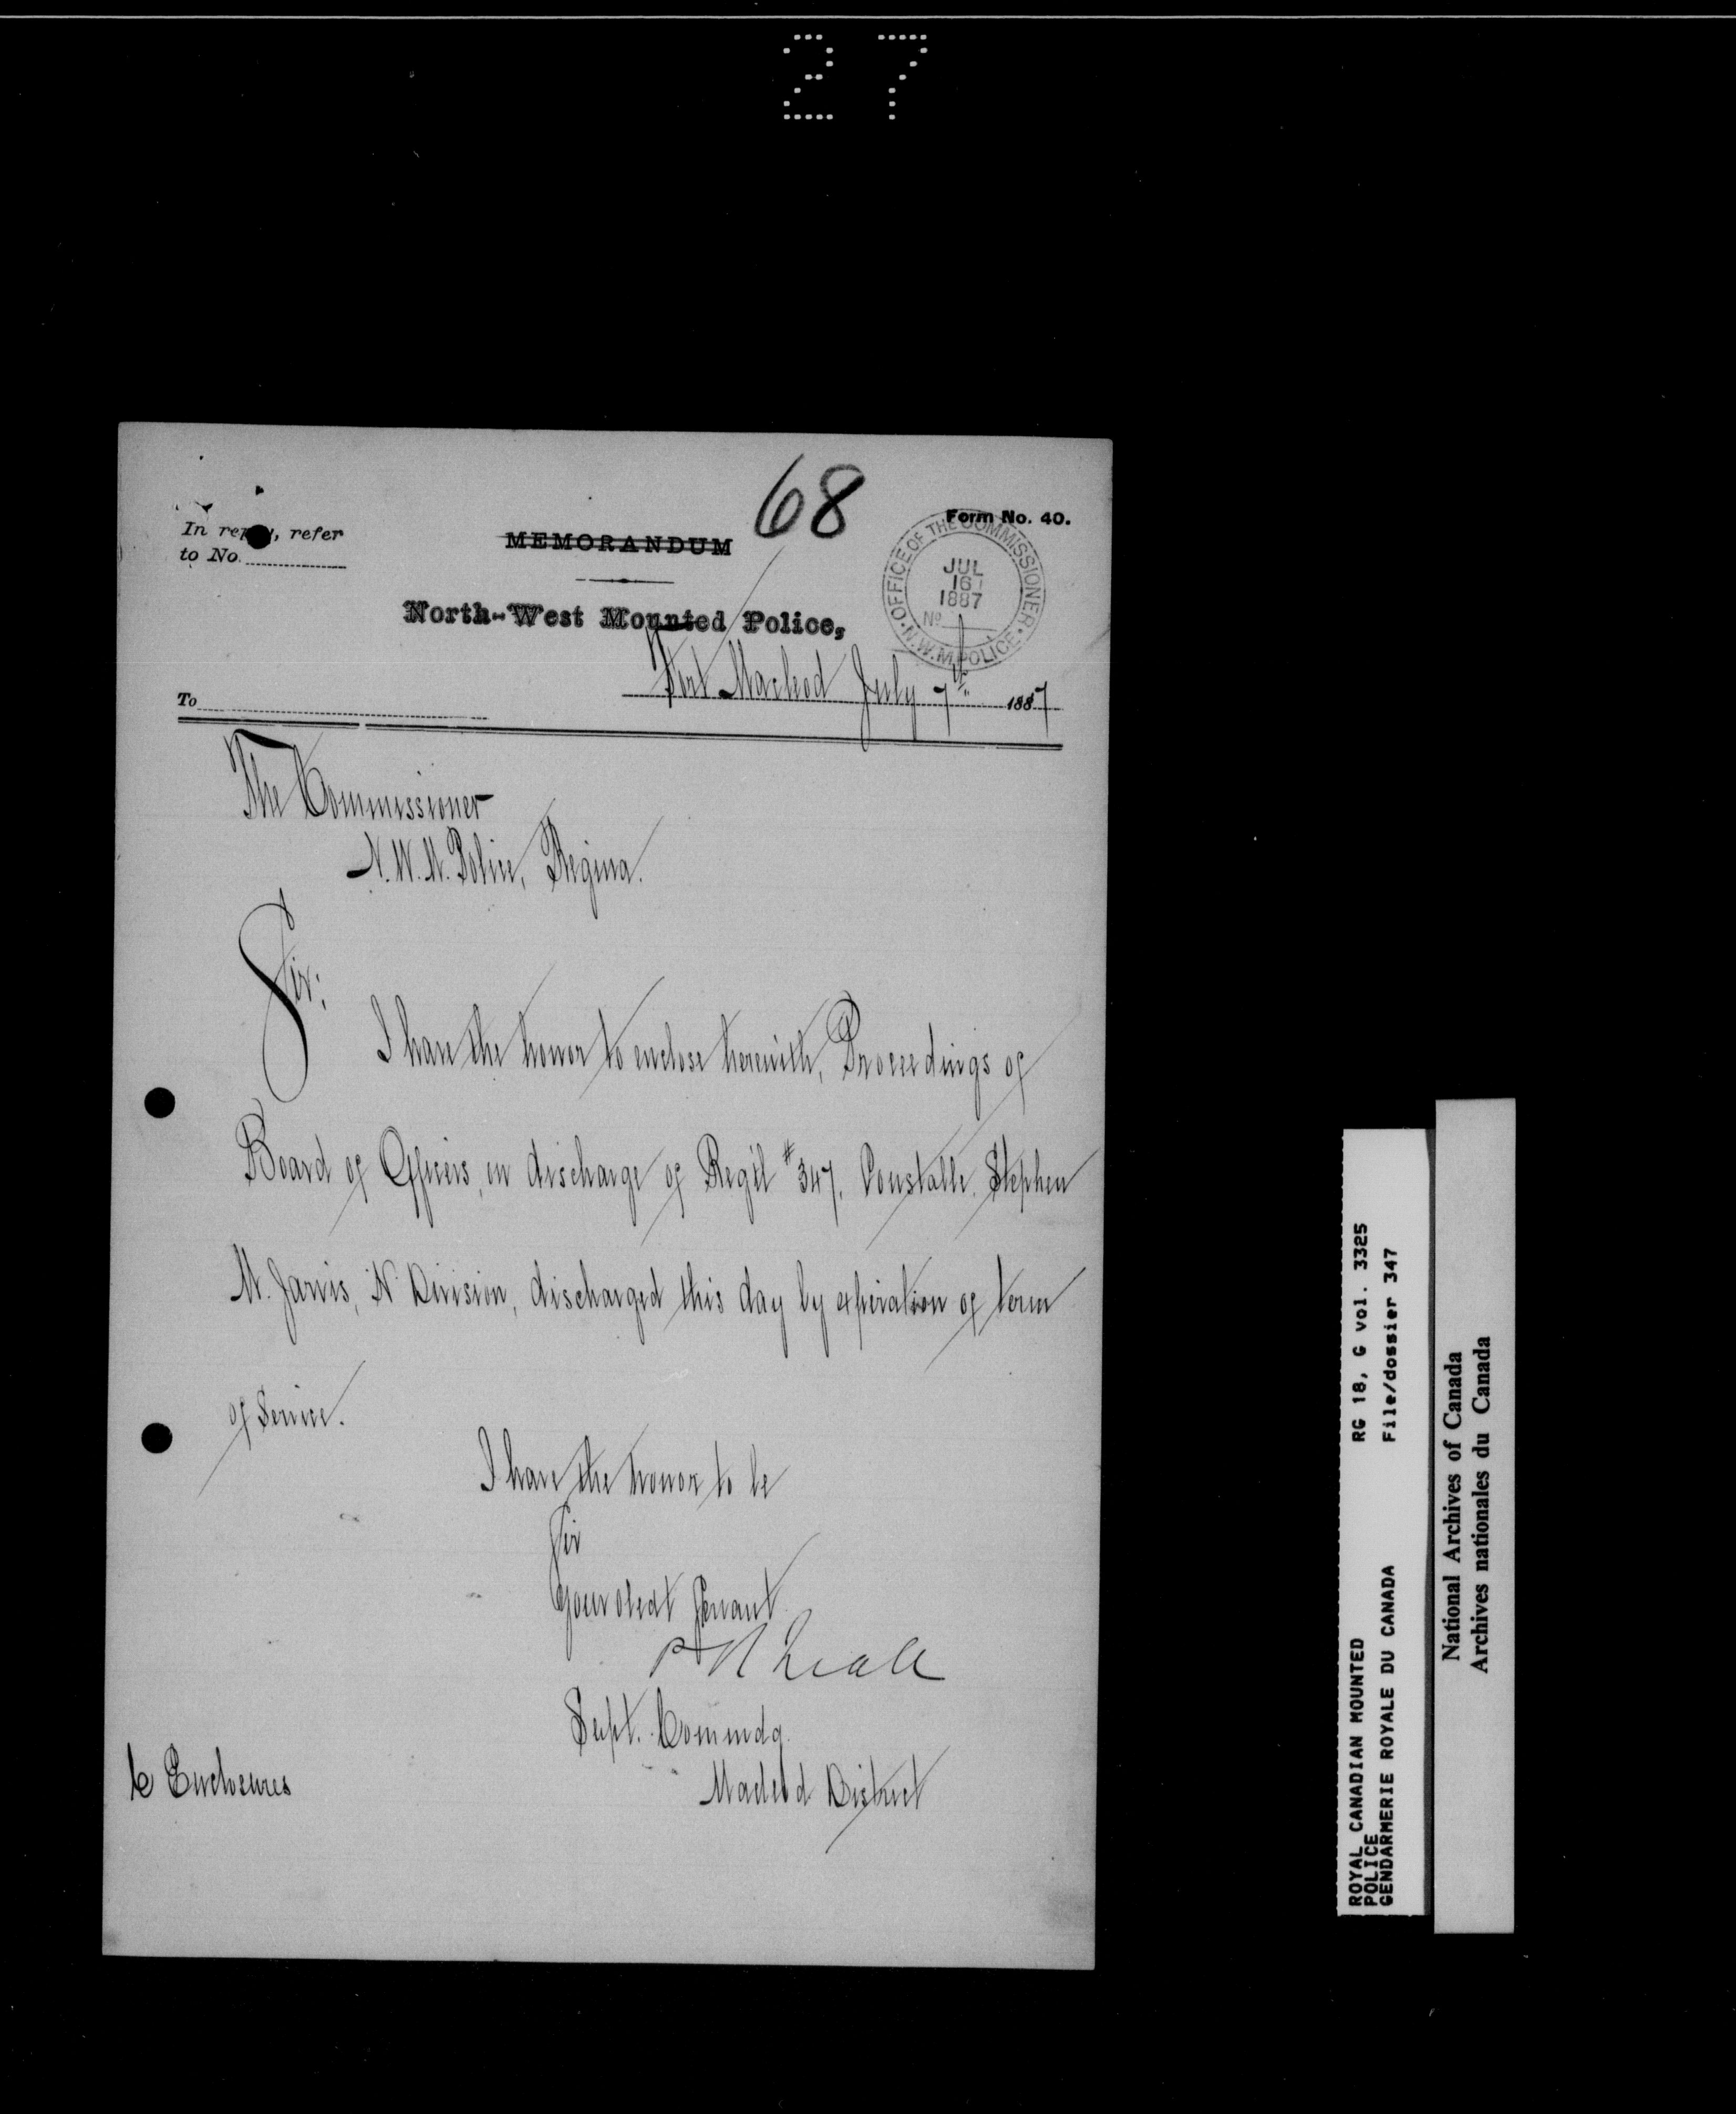 27
68
Form No. 40.
In reply, refer
to No.
MEMORANDUM
OFFICE OF THE COMMISSIONER
JUL
16
1887
No
N.W.M. POLICE
North-West Mounted Police,
Fort Macleod July 7th 1887
To
The Commissioner
N.W.M. Police, Regina.
Sir:
I have the honor to enclose herewith, Proceedings of
Board of Officers, on discharge of Reg'l #347, Constable, Stephen
M. Jarvis, Division, discharged this day by expiration of term
of Service.
I have the honor to be
Sir
Your obedt Servant
P R Neale
Supt. Commdg.
Macleod District
Enclosures
ROYAL CANADIAN MOUNTED
POLICE
GENDARMERIE ROYALE DU CANADA
RG 18, G vol. 3325
File/dossier 347
National Archives of Canada
Archives nationales du Canada